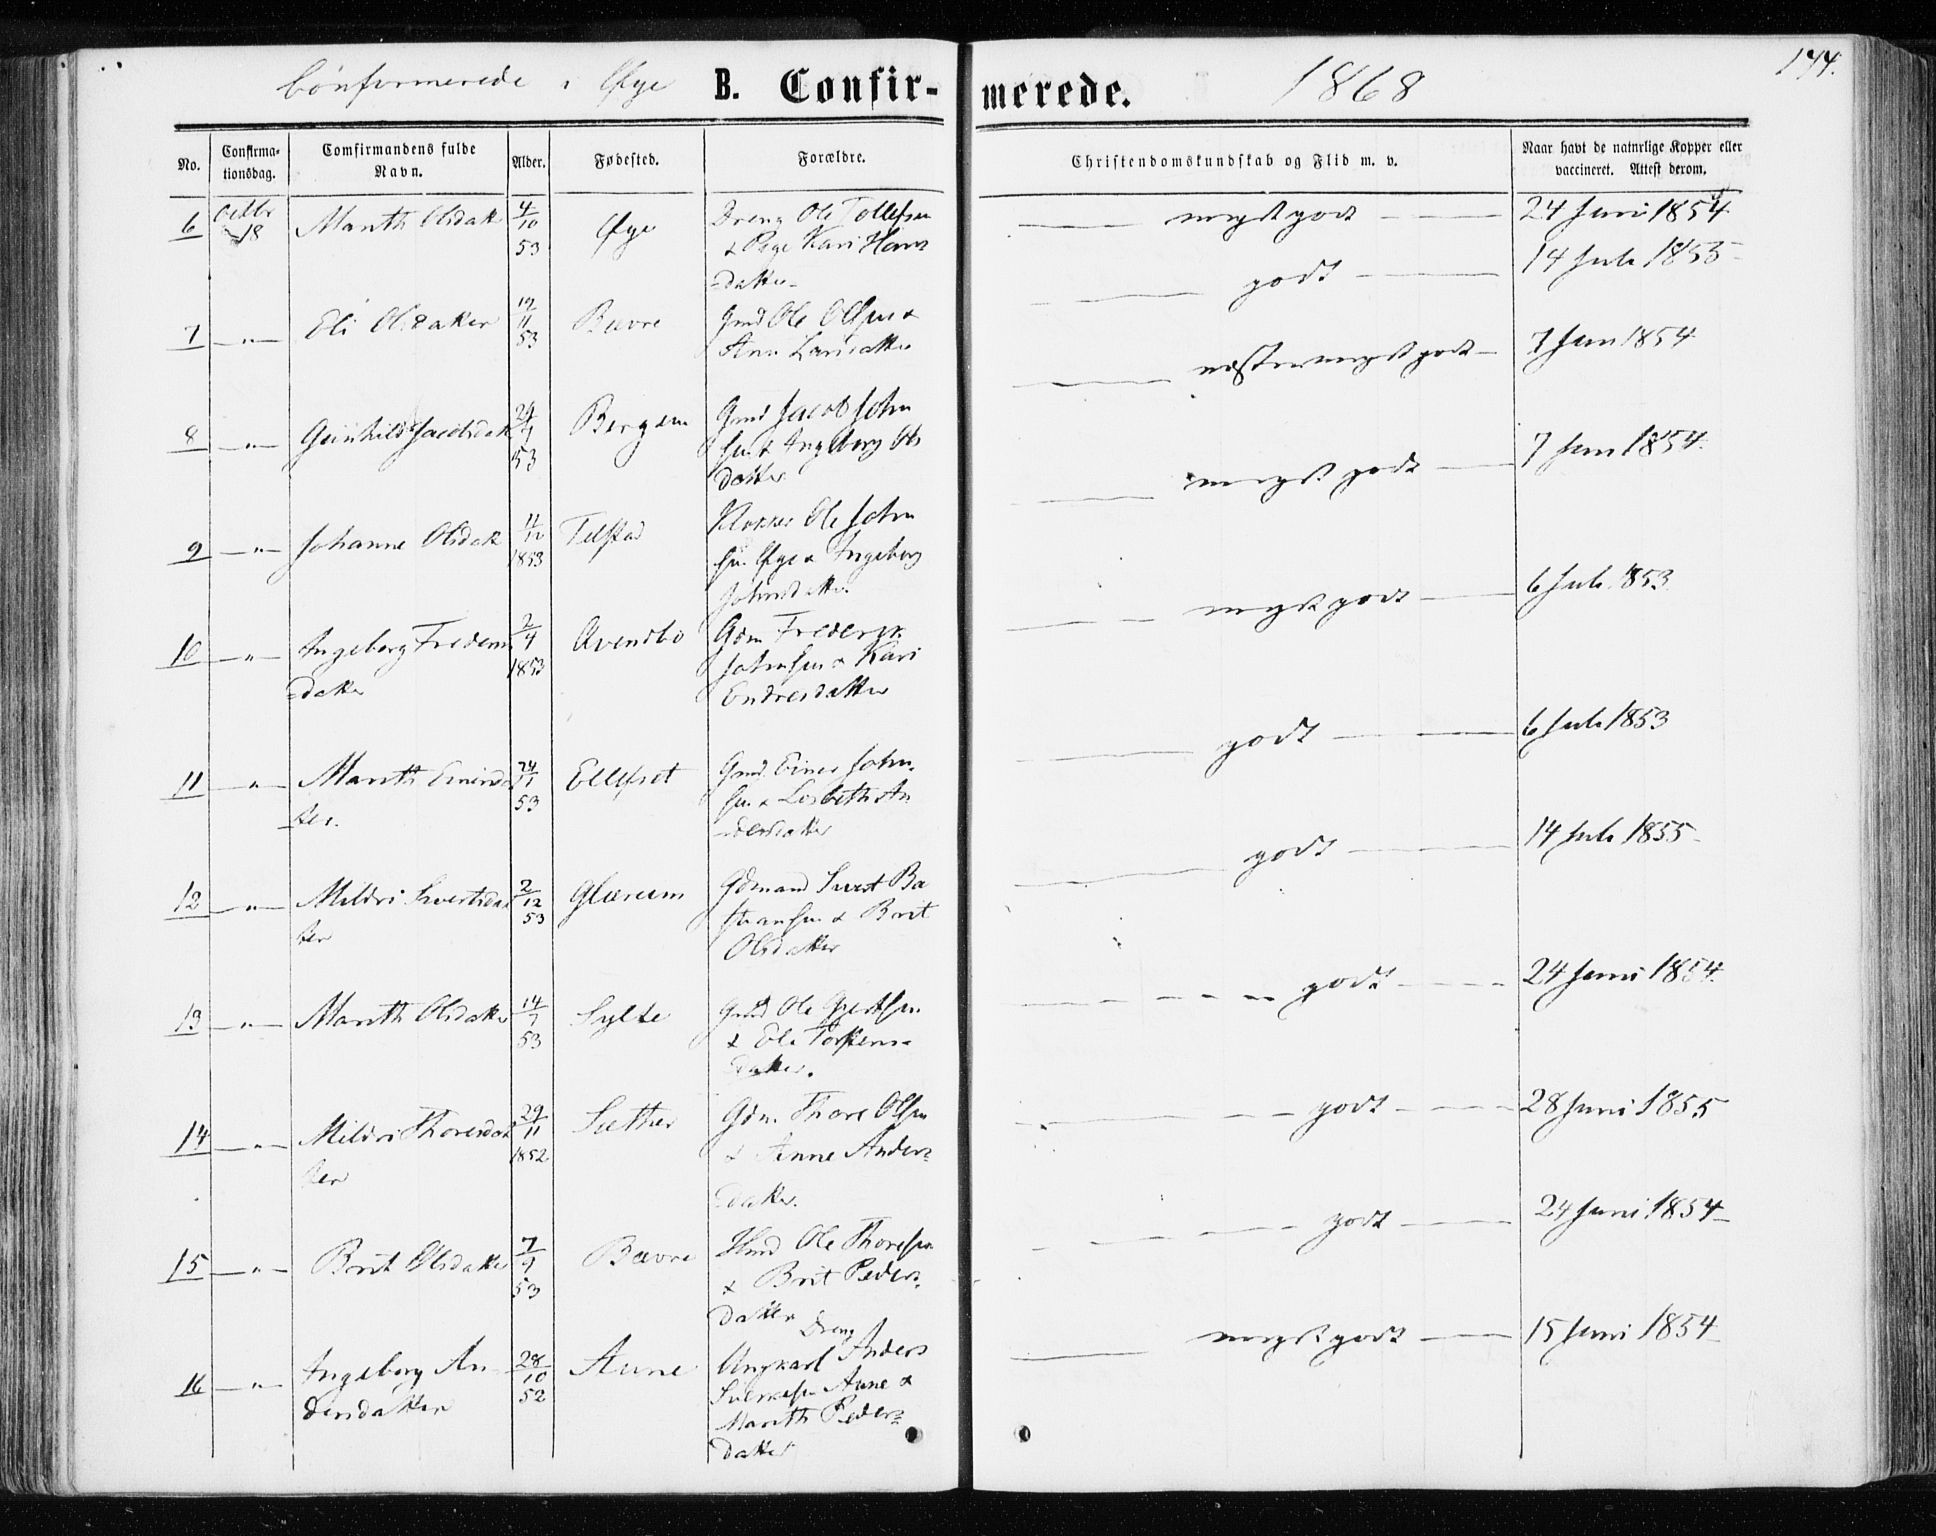 Confirmerede i Øye B. Confir-merede. 1868 144.
No. Confirma-tionsdag. Comfirmandens fulde Navn. Alder. Fødested. Forældre. Christendomskundskab og Flid m. v. Naar havt de naturlige Kopper eller vaccineret. Attest derom.
6 Octbr 18 Marith Olsdatt 4/10 53 Øye Dreng Ole Tollefsen
& Pige Kari Hans
-datter
meget godt 24 Juni 1854
7 " Eli Olsdatter 12/11 53 Bævre Gmd Ole Olsen &
Ane Larsdatter
godt 14 Juli 1855
8 " Gunhild Jacobsdatt 53 Bergem Gmd Jacob John
sen & Ingeborg Ols
datter
næsten meget godt 7 Juni 1854
9 " Johanne Olsdatt 11/10 1853 Telstad Klokker Ole John
sen Øye & Ingeborg
Johnsdatter
meget godt 7 Juni 1854
10 " Ingeborg Frederiks
-datter 2/4 1853 Qvendbø Gdm Frederik
Johnsen & Kari
Endresdatter
meget godt 6 Juli 1853
11 " Marith Einersdat
ter 24/1 53 Ellefset Gmd. Einer John-
sen & Lisbeth An
-dersdatter
godt 6 Juli 1853
12 " Mildri Sivertsdat
ter 2/12 53 Glærum Gdmand Sivert Ba
stiansen & Brit
Olsdatter
godt 14 Juli 1855
13 " Marith Olsdatter 14/7 53 Sylte Gmd Ole Gjertsen
& Eli Torstens-
datter.
godt 24 Juni 1854
14 " Mildri Thoresdat
ter 29/11 1852 Sæther Gdm. Thore Olsen
& Anne Anders-
datter.
godt 28 Juni 1855
15 " Brit Olsdatter 7/9 53 Bævre Hmd Ole Thoresen
& Brit Peders-
datter
godt 24 Juni 1854
16 " Ingeborg An-
dersdatter 28/10 52 Aune Dreng
Ungkarl Anders
Aune &
Marith Peders-
datter
meget godt 15 Juni 1854